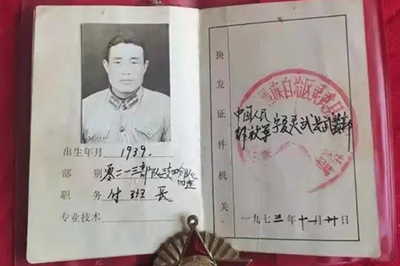 出生年月 1939.
部 别 零二一三部队
职 务 付班长
专业技术
换发证件机关
中国人民
解放军宁夏灵武县武装部
族自治区
一九七三年十一月廿日